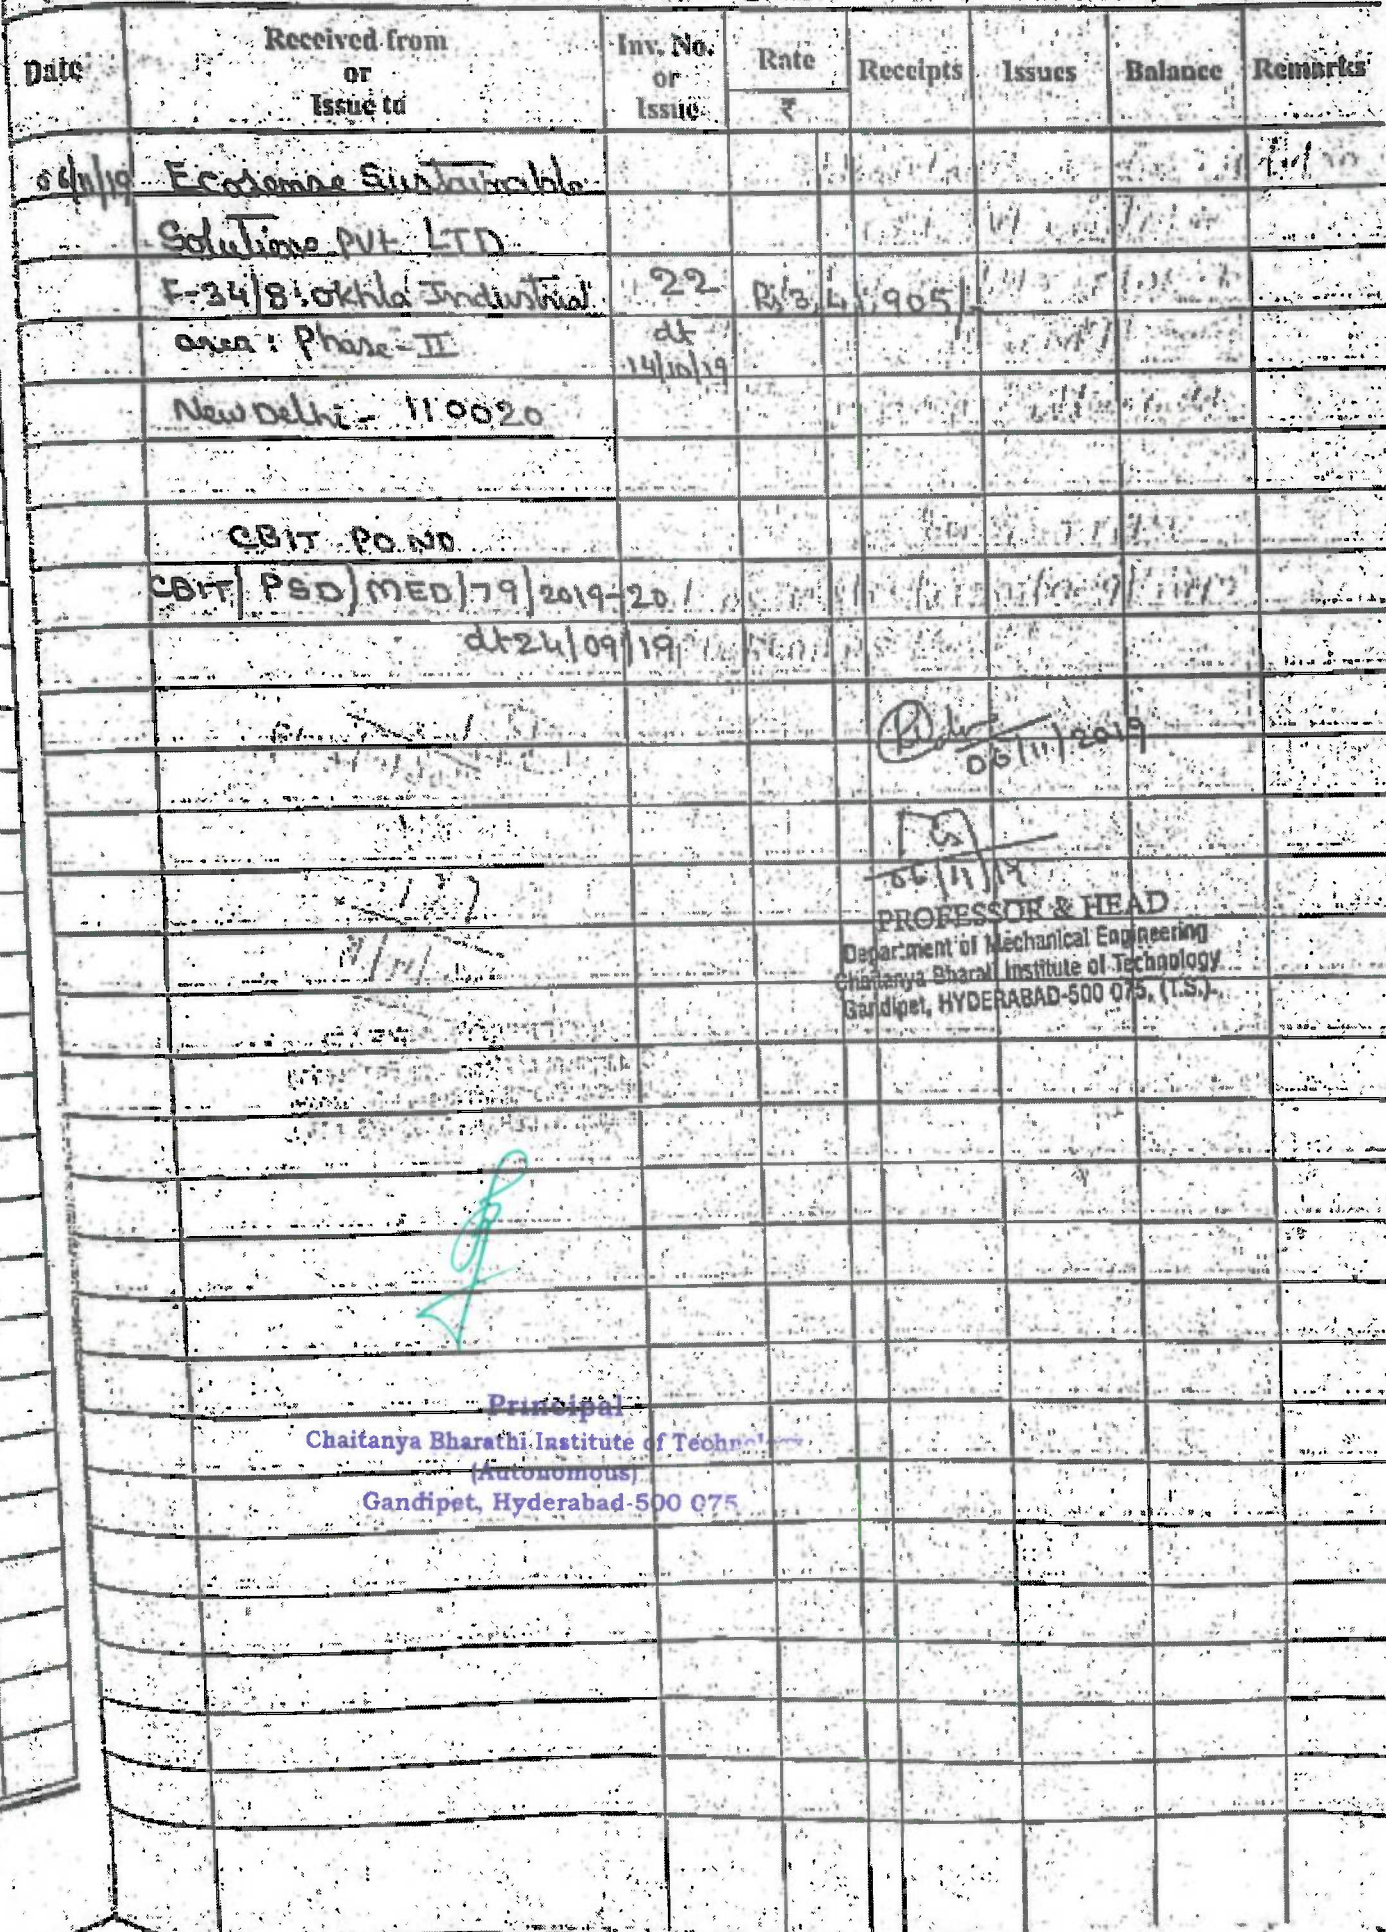 Date
Received from
or
Issue to
Inv. No.
or
Issue
Rate
₹
Receipts
Issues
Balance
Remarks
06/11/19 Ecosense Sustainable
Solutions PVt LTD
F-34/8 Okhla Industrial 22 Rs 3,41,905/-
area: Phase-II dt
14/10/19
New Delhi - 110020
CBIT PO.NO
CBIT/PSD/MED/79/2019-20/
dt 24/09/19
06/11/2019
06/11/19
PROFESSOR & HEAD
Department of Mechanical Engineering
Chaitanya Bharati Institute of Technology
Gandipet, HYDERABAD-500 075, (T.S.)
Principal
Chaitanya Bharathi Institute of Technology
(Autonomous)
Gandipet, Hyderabad-500 075